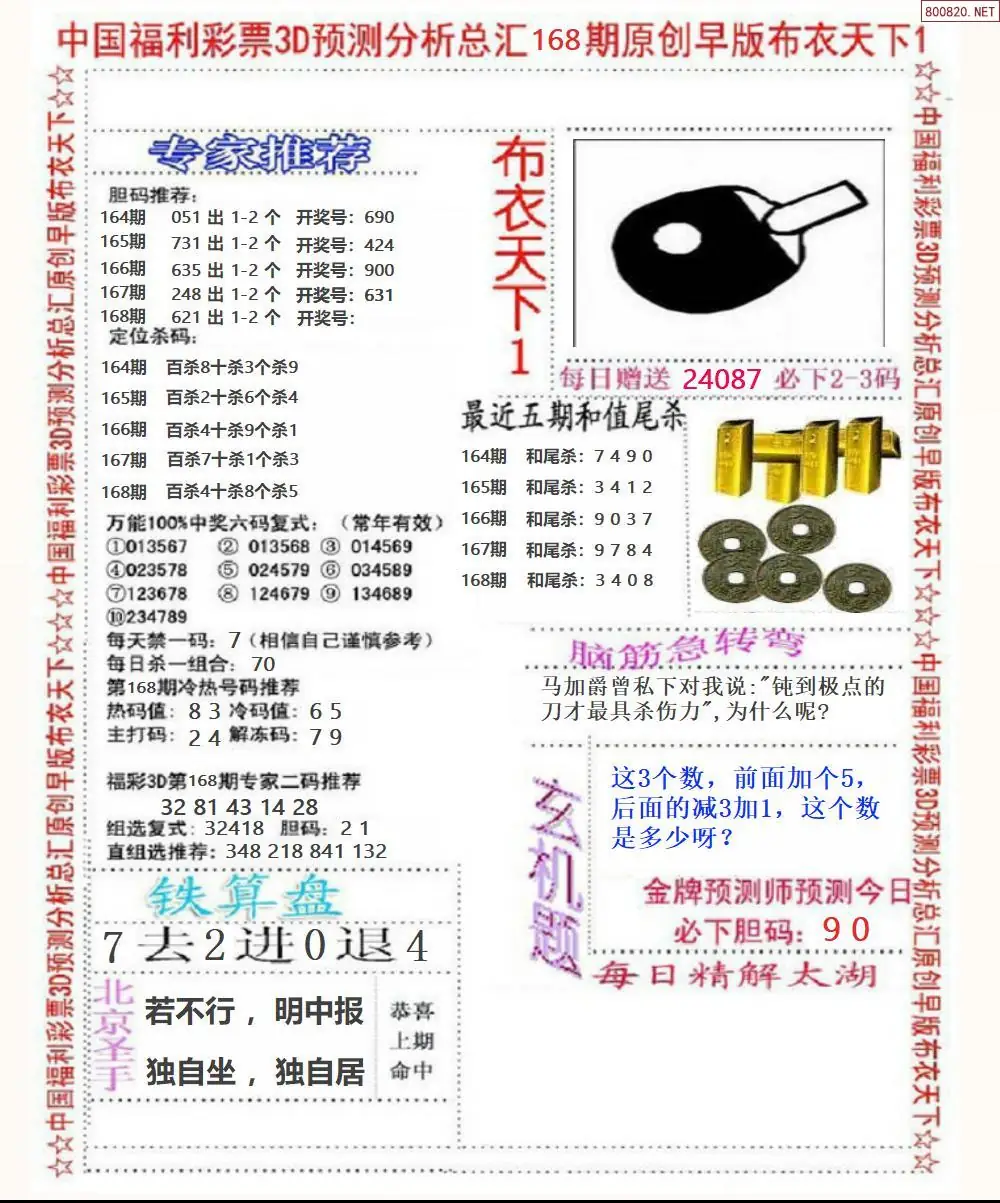 800820.NET
中国福利彩票3D预测分析总汇168期原创早版布衣天下1
专家推荐
胆码推荐:
164期 051 出 1-2 个 开奖号: 690
165期 731 出 1-2 个 开奖号: 424
166期 635 出 1-2 个 开奖号: 900
167期 248 出 1-2 个 开奖号: 631
168期 621 出 1-2 个 开奖号:
定位杀码:
164期 百杀8十杀3个杀9
165期 百杀2十杀6个杀4
166期 百杀4十杀9个杀1
167期 百杀7十杀1个杀3
168期 百杀4十杀8个杀5
万能100%中奖六码复式: （常年有效）
①013567 ② 013568 ③ 014569
④023578 ⑤ 024579 ⑥ 034589
⑦123678 ⑧ 124679 ⑨ 134689
⑩234789
每天禁一码: 7（相信自己谨慎参考）
每日杀一组合: 70
第168期冷热号码推荐
热码值: 8 3 冷码值: 6 5
主打码: 2 4 解冻码: 7 9
福彩3D第168期专家二码推荐
32 81 43 14 28
组选复式: 32418 胆码: 2 1
直组选推荐: 348 218 841 132
铁算盘
7去2进0退4
北京圣手
若不行，明中报
独自坐，独自居
恭喜
上期
命中
布衣天下1
每日赠送 24087 必下2-3码
最近五期和值尾杀
164期 和尾杀: 7 4 9 0
165期 和尾杀: 3 4 1 2
166期 和尾杀: 9 0 3 7
167期 和尾杀: 9 7 8 4
168期 和尾杀: 3 4 0 8
脑筋急转弯
马加爵曾私下对我说:"钝到极点的
刀才最具杀伤力",为什么呢?
玄机题
这3个数，前面加个5，
后面的减3加1，这个数
是多少呀？
金牌预测师预测今日
必下胆码: 9 0
每日精解太湖
☆☆中国福利彩票3D预测分析总汇原创早版布衣天下☆☆☆中国福利彩票3D预测分析总汇原创早版布衣天下☆☆
☆☆中国福利彩票3D预测分析总汇原创早版布衣天下☆☆☆中国福利彩票3D预测分析总汇原创早版布衣天下☆☆